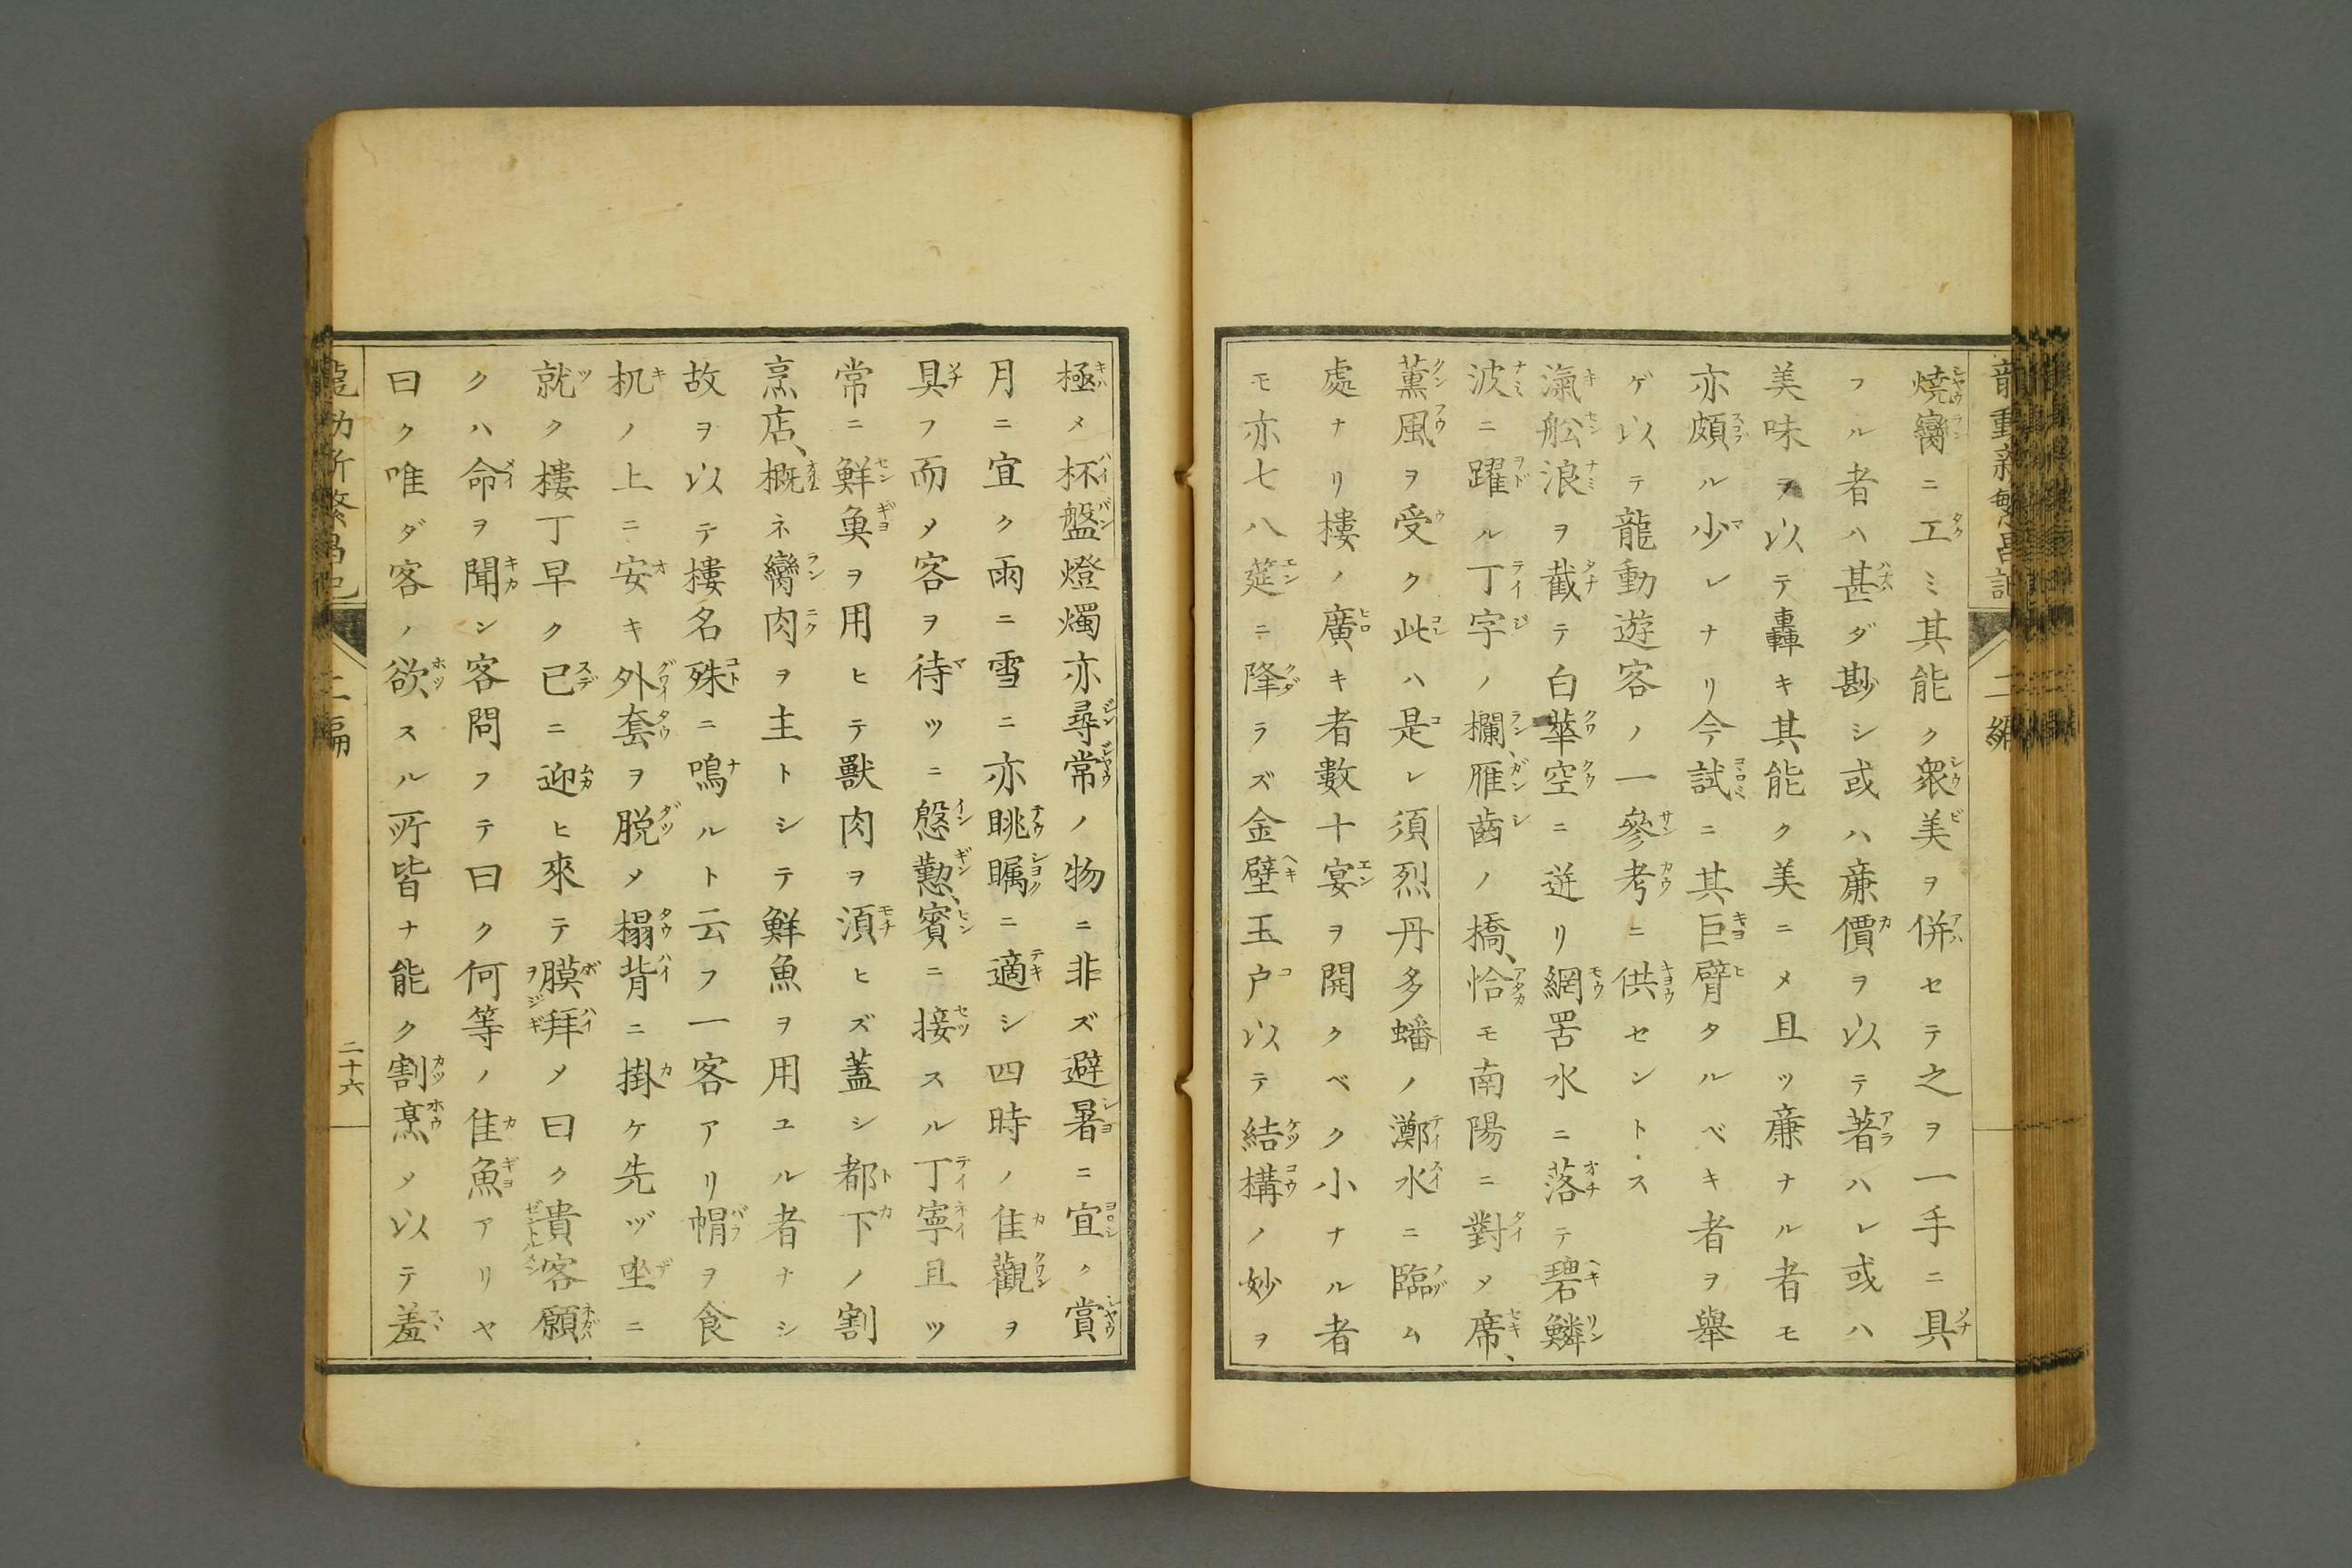 龍動新繁昌記 二編
燒臠ニ工ミ其能ク衆美ヲ併セテ之ヲ一手ニ具
フル者ハ甚ダ尠シ或ハ廉價ヲ以テ著ハレ或ハ
美味ヲ以テ轟キ其能ク美ニメ且ッ廉ナル者モ
亦頗ル少レナリ今試ニ其巨臂タルベキ者ヲ舉
ゲ以テ龍動遊客ノ一參考ニ供セントス
滊舩浪ヲ截テ白華空ニ迸リ網罟水ニ落テ碧鱗
波ニ躍ル丁字ノ欄、雁齒ノ橋、恰モ南陽ニ對メ席、
薫風ヲ受ク此ハ是レ須烈丹多蟠ノ瀞水ニ臨ム
處ナリ樓ノ廣キ者數十宴ヲ開クベク小ナル者
モ亦七八莚ニ降ラズ金壁玉戸以テ結構ノ妙ヲ
極メ杯盤燈燭亦尋常ノ物ニ非ズ避暑ニ宜ク賞
月ニ宜ク雨ニ雪ニ亦眺矚ニ適シ四時ノ佳觀ヲ
具フ而メ客ヲ待ツニ慇懃、賓ニ接スル丁寧且ツ
常ニ鮮魚ヲ用ヒテ獸肉ヲ湏ヒズ蓋シ都下ノ割
烹店、概ネ臠肉ヲ主トシテ鮮魚ヲ用ユル者ナシ
故ヲ以テ樓名殊ニ鳴ルト云フ一客アリ帽ヲ食
机ノ上ニ安キ外套ヲ脱メ榻背ニ掛ケ先ヅ坐ニ
就ク樓丁早ク已ニ迎ヒ來テ膜拜メ曰ク貴客願
クハ命ヲ聞ン客問フテ曰ク何等ノ佳魚アリヤ
曰ク唯ダ客ノ欲スル所皆ナ能ク割烹メ以テ羞
龍動新繁昌記 二編 二十六